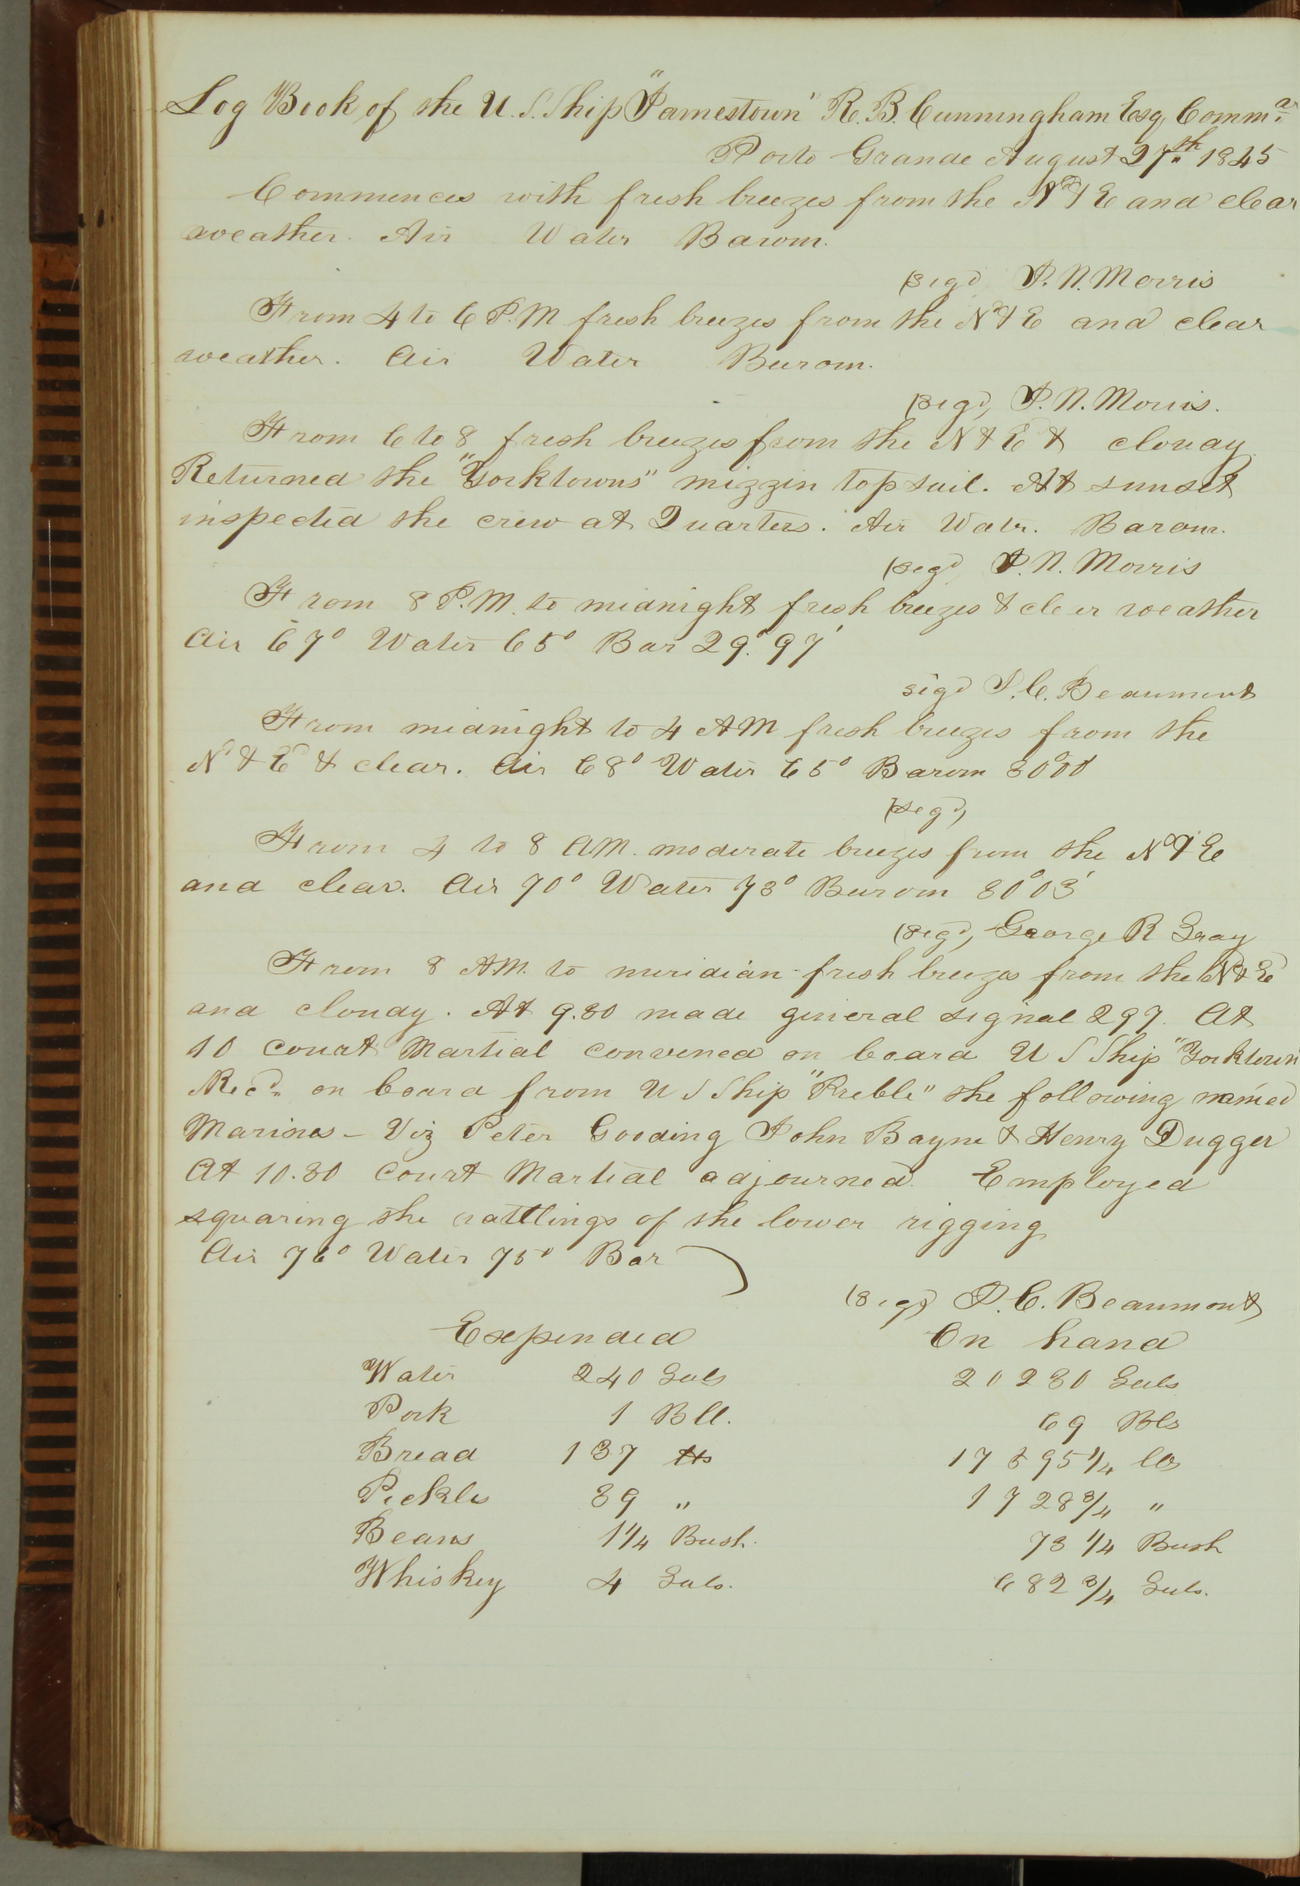 Log Book of the U.S. Ship "Jamestown" R. B. Cunningham Esq Comm.d
Porto Grande August 27.th 1845
Commences with fresh breezes from the Nd & E and clear
weather. Air Water Barom.
(sigd) J. N. Morris
From 4 to 6 P.M fresh breezes from the Nd & E and clear
weather. Air Water Barom.
(sigd) J. N. Morris.
From 6 to 8 fresh breezes from the N & Ed & cloudy
Returned the "Yorktowns" mizzin topsail. At sunset
inspected the crew at Quarters. Air Watr. Barom.
(sigd) J. N. Morris
From 8 P.M. to midnight fresh breezes & clear weather
Air 67° Water 65° Bar 29.°97'
sigd J. C. Beaumont
From midnight to 4 AM fresh breezes from the
Nd & Ed & clear. Air 68° Water 65° Barom 30°00
(sigd)
From 4 to 8 AM. moderate breezes from the Nd & E
and clear. Air 70° Water 73° Barom 30°03'
(sigd) George R Gray
From 8 AM. to meridian fresh breezes from the Nd & Ed
and cloudy. At 9.30 made general signal 297. At
10 Court Martial convened on board U S Ship "Yorktown
Recd. on board from U S Ship "Preble" the following named
Marines - Viz Peter Gooding John Bayne & Henry Dugger
At 10.30 Court Martial adjourned. Employed
squaring the rattlings of the lower rigging
Air 76° Water 75° Bar
(sigd) J. C. Beaumont
Expended On hand
Water 240 Gals 20230 Gals
Pork 1 Bll. 69 Bls
Bread 137 lbs 17395 1/4 lbs
Pickles 39 " 1728 3/4 "
Beans 1 1/4 Bush. 73 1/4 Bush
Whiskey 4 Gals. 682 3/4 Gals.